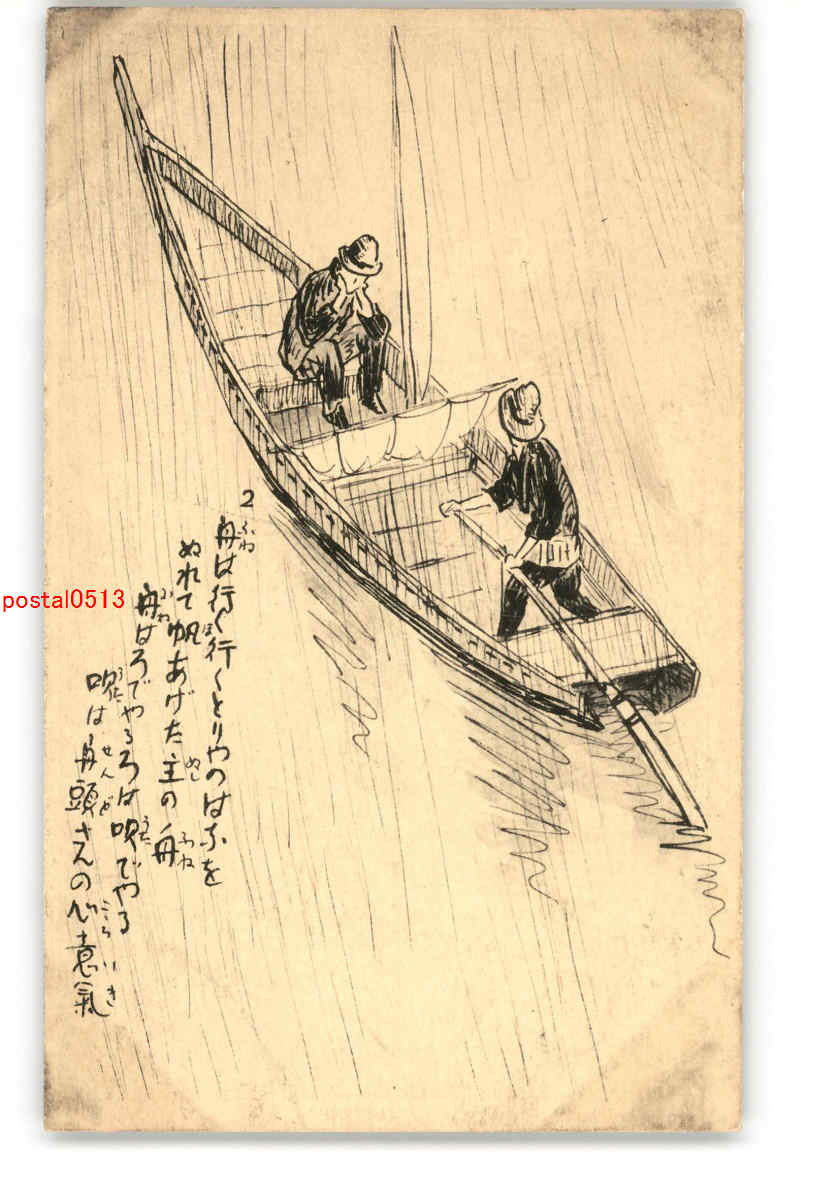 2
舟は行く行くとりやのはなを
ぬれて帆あげた主の舟
舟はろでやるろは唄でやる
唄は舟頭さんの心意氣
postal0513